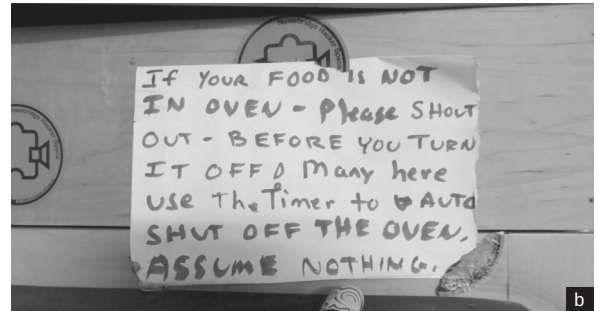 Noisebridge Hacker Space
If YOUR FOOD IS NOT
IN OVEN - Please SHOUT
OUT - BEFORE YOU TURN
IT OFF Many here
use The Timer to AUTO
SHUT OFF THE OVEN.
ASSUME NOTHING.
b